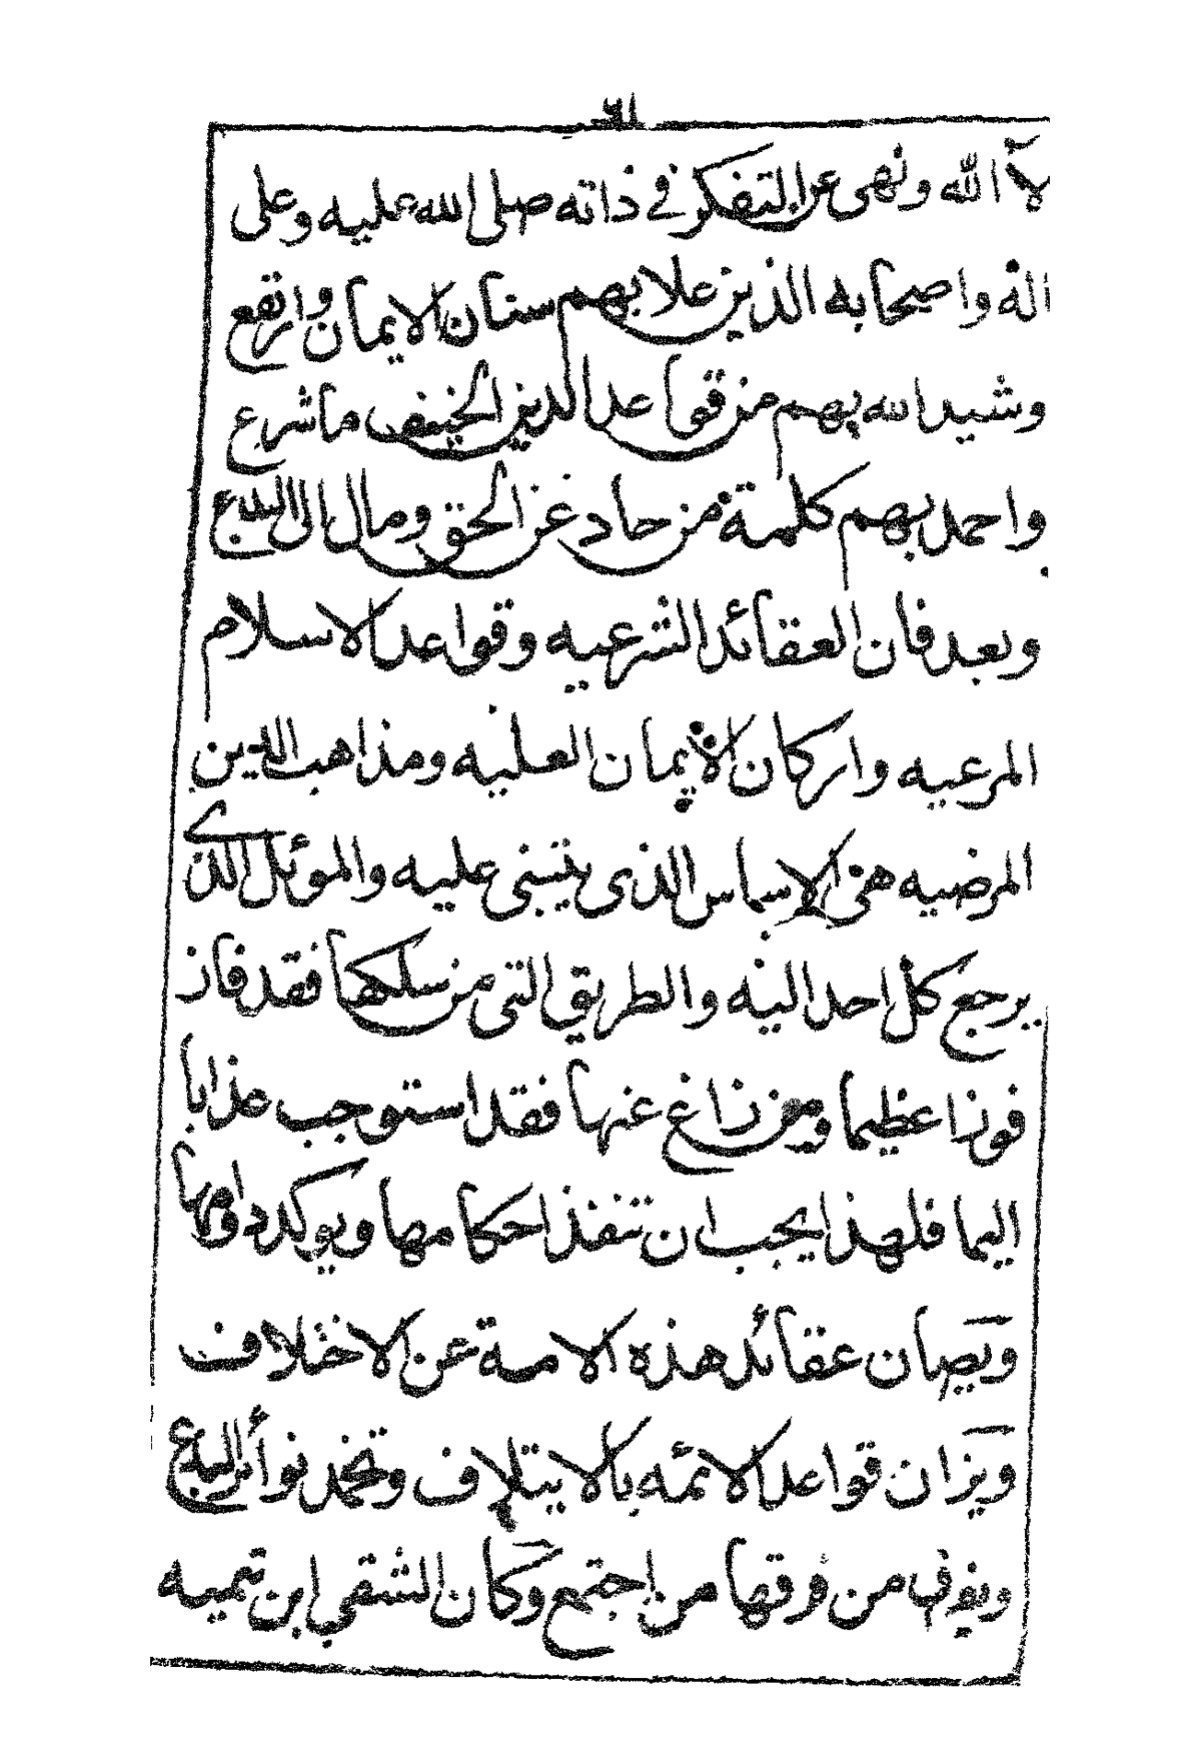 ٦١
لآ الله ونهى عن التفكر في ذاته صلى الله عليه وعلى
اله واصحابه الذين علا بهم سنان الايمان وارتفع
وشيد الله بهم من قواعد الدين الحنيف ما شرع
واحمد بهم كلمة من حاد عن الحق ومال الى البدع
وبعد فان العقائد الشرعيه وقواعد الاسلام
المرعيه واركان الايمان العليه ومذاهب الدين
المرضيه هى الاساس الذى يبتنى عليه والموئل الذى
يرجع كل احد اليه والطريق التى من سلكها فقد فاز
فوزا عظيما ومن زاغ عنها فقد استوجب عذابا
اليما فلهذا يجب ان تنفذ احكامها ويوكد دوامها
ويصان عقائد هذه الامة عن الاختلاف
ويزان قواعد الائمه بالايتلاف وتخمد نوائر البدع
ويفرق من فرقها من اجتمع وكان الشقي ابن تيميه